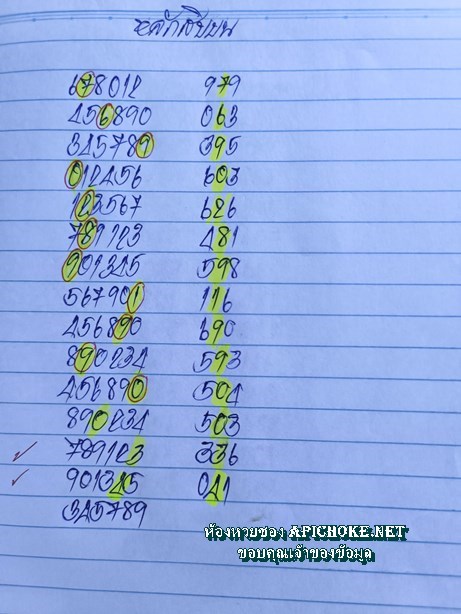 หลักสิบบน
678012 979
456890 063
345789 395
012456 603
123567 626
789123 481
901345 598
567901 116
456890 690
890234 593
456890 504
890234 503
789123 336
901345 041
345789
ห้องหวยซอง APICHOKE.NET
ขอบคุณเจ้าของข้อมูล